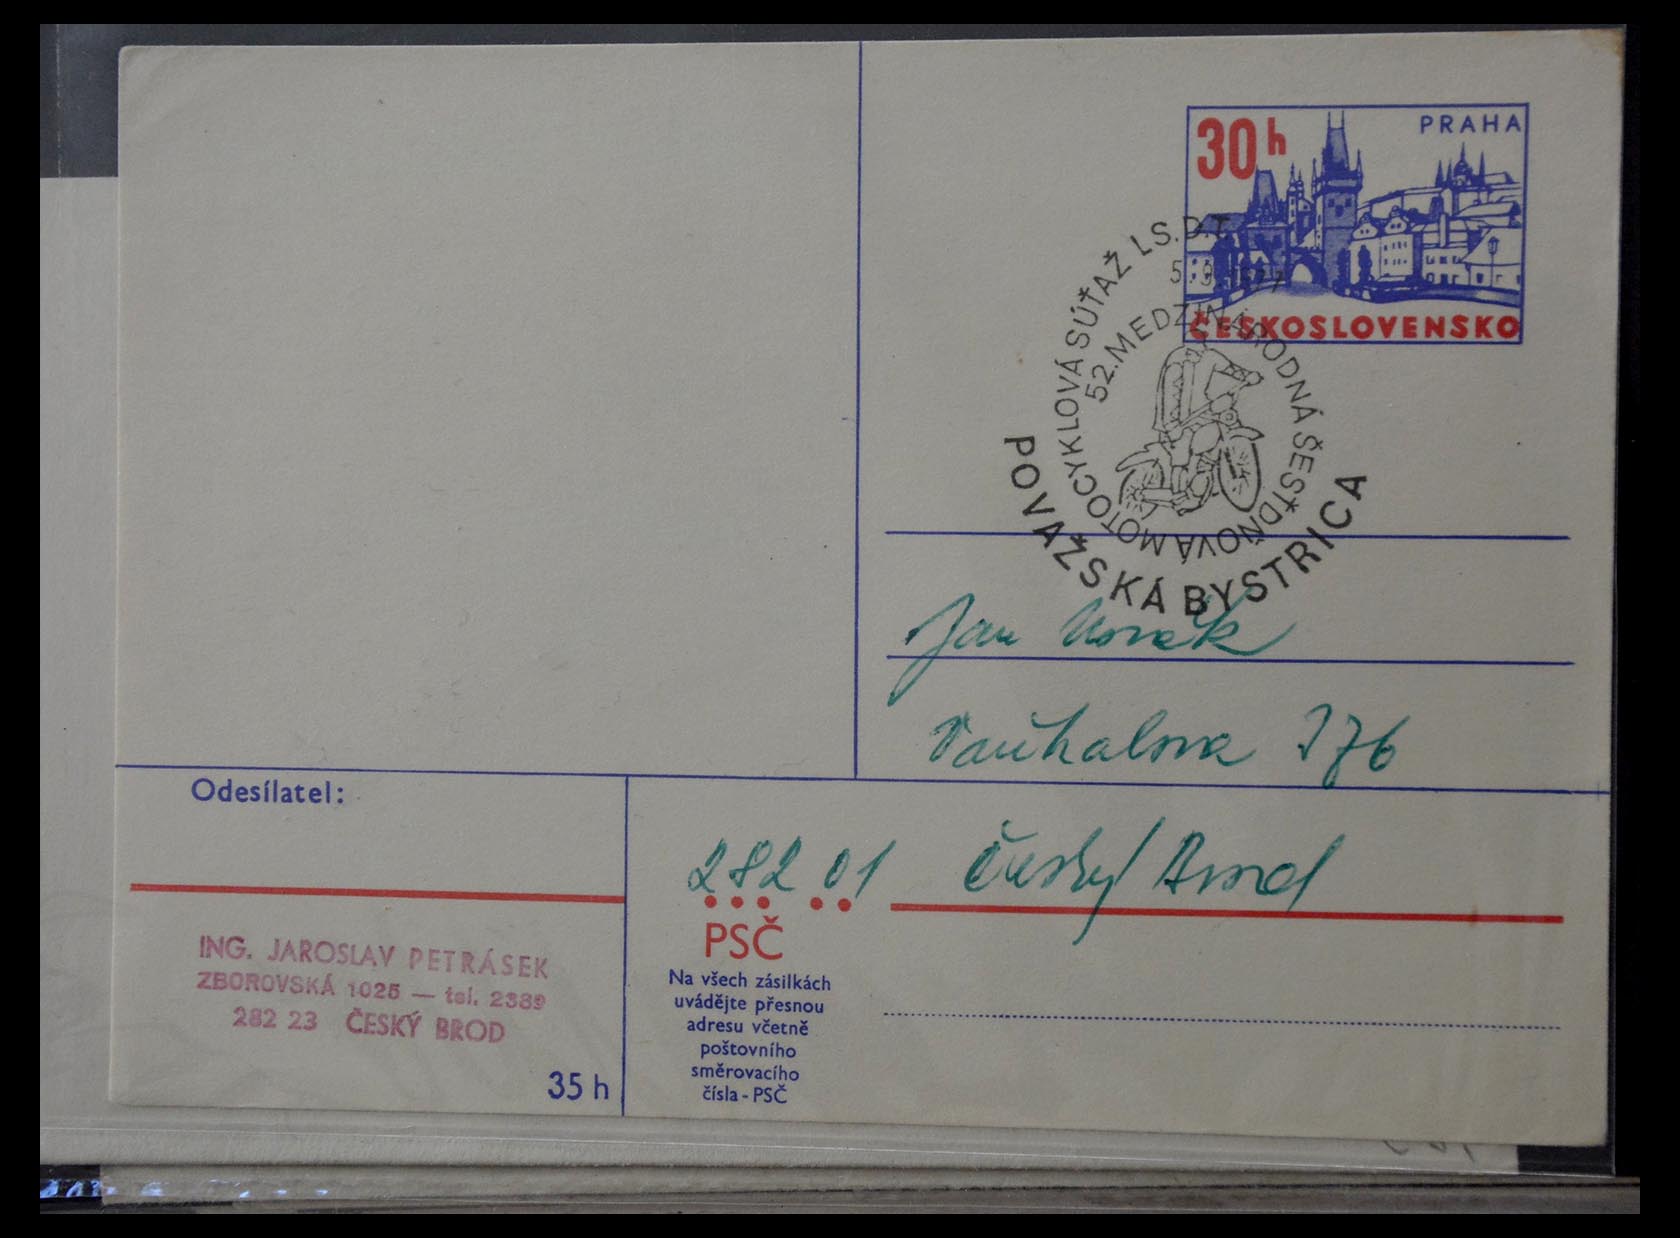 PRAHA
30 h
ČESKOSLOVENSKO
52. MEDZINÁRODNÁ ŠESŤDŇOVÁ MOTOCYKLOVÁ SÚŤAŽ I.S.D.T.
5.9.1977
POVAŽSKÁ BYSTRICA
Jan Novák
376
282 01 Český Brod
Odesílatel:
ING. JAROSLAV PETRÁSEK
ZBOROVSKÁ 1025 — tel. 2389
282 23 ČESKÝ BROD
35 h
PSČ
Na všech zásilkách
uvádějte přesnou
adresu včetně
poštovního
směrovacího
čísla - PSČ